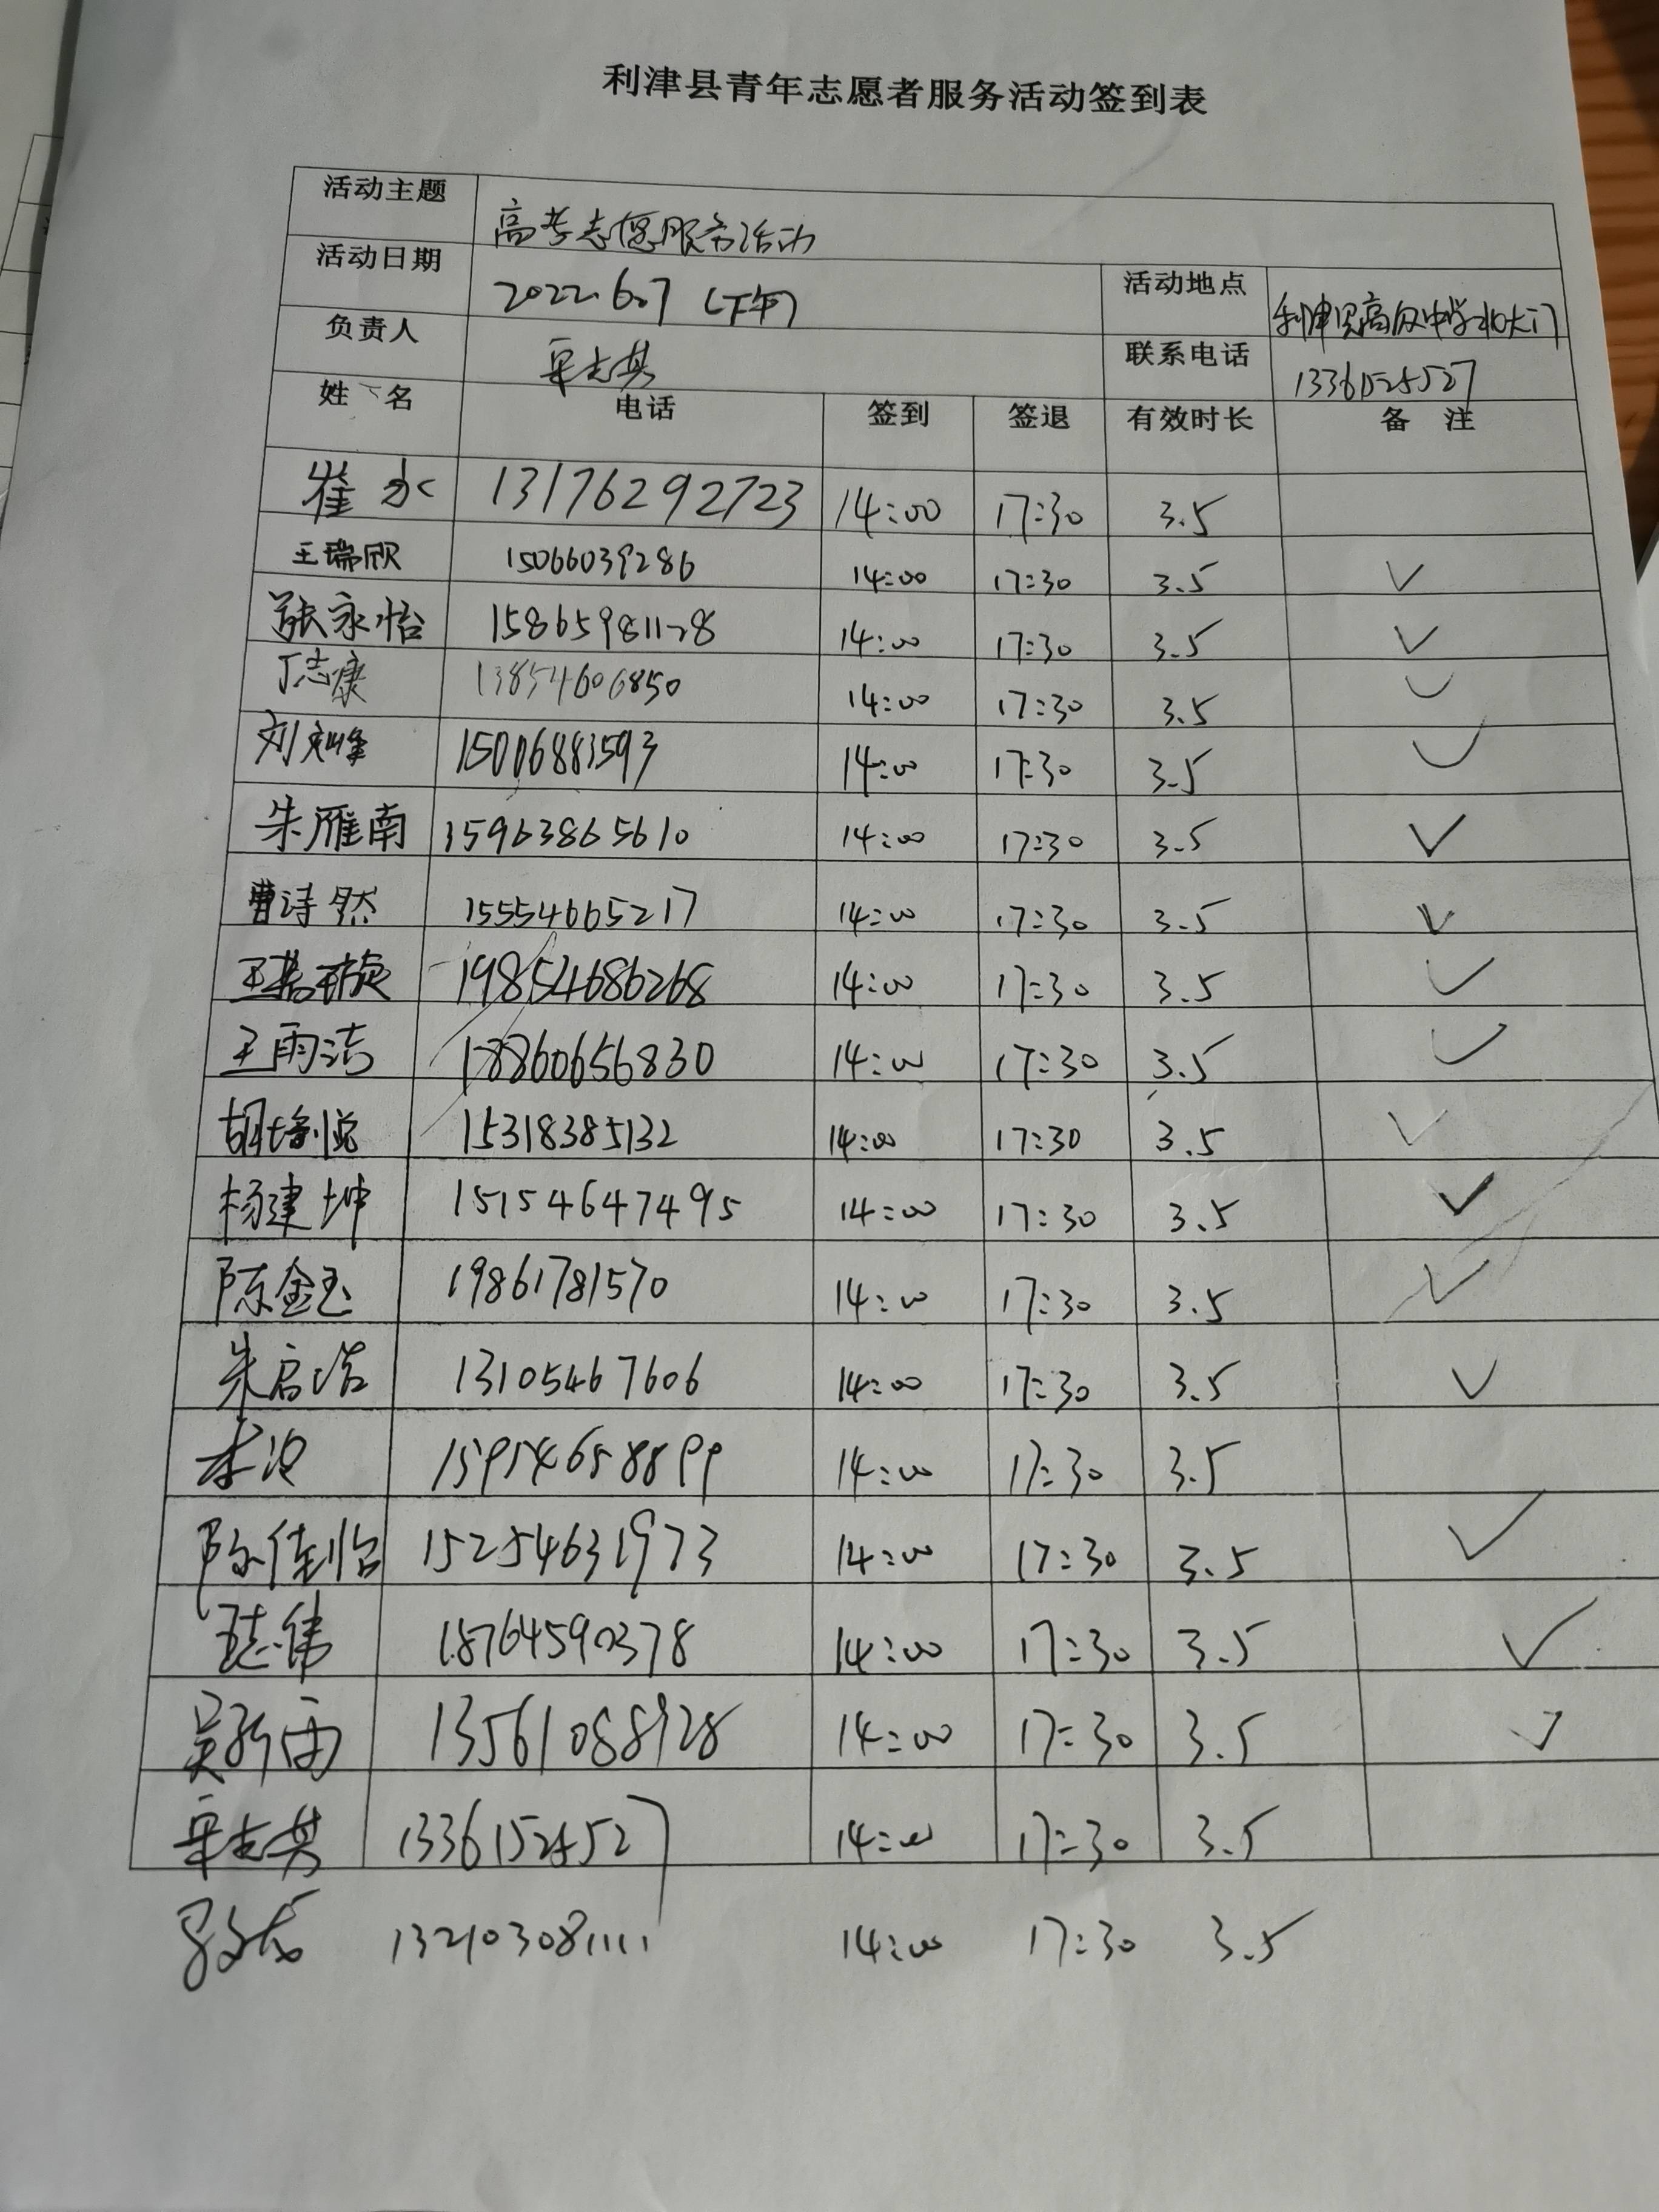 利津县青年志愿者服务活动签到表
活动主题 高考志愿服务活动
活动日期 2022.6.7 (下午) 活动地点 利津县高级中学北大门
负责人 联系电话 13361524527
姓 名 电话 签到 签退 有效时长 备 注
崔永 13176292723 14:00 17:30 3.5
王瑞欣 15066039286 14:00 17:30 3.5 ✓
张永怡 15865981128 14:00 17:30 3.5 ✓
丁志康 13854606850 14:00 17:30 3.5 ✓
刘 15006883593 14:00 17:30 3.5 ✓
朱雁南 15963865610 14:00 17:30 3.5 ✓
曹诗然 15554665217 14:00 17:30 3.5 ✓
王 19854686268 14:00 17:30 3.5 ✓
王雨洁 18860656830 14:00 17:30 3.5 ✓
胡 15318385132 14:00 17:30 3.5 ✓
杨建坤 15154647495 14:00 17:30 3.5 ✓
陈金玉 19861781570 14:00 17:30 3.5 ✓
朱启浩 13105467606 14:00 17:30 3.5 ✓
14:00 17:30 3.5
陈佳怡 15254631973 14:00 17:30 3.5 ✓
王志伟 18764590378 14:00 17:30 3.5 ✓
吴 雨 13561088928 14:00 17:30 3.5 ✓
13361524527 14:00 17:30 3.5
132103081111 14:00 17:30 3.5